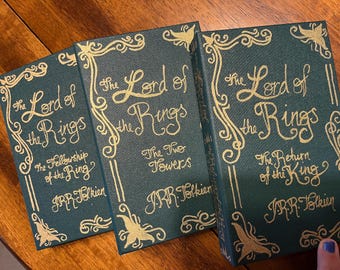 The
Lord of
the Rings
The Fellowship
of the Ring
JRR Tolkien
The
Lord of
the Rings
The Two
Towers
JRR Tolkien
The
Lord of
the Rings
The Return
of the King
JRR Tolkien